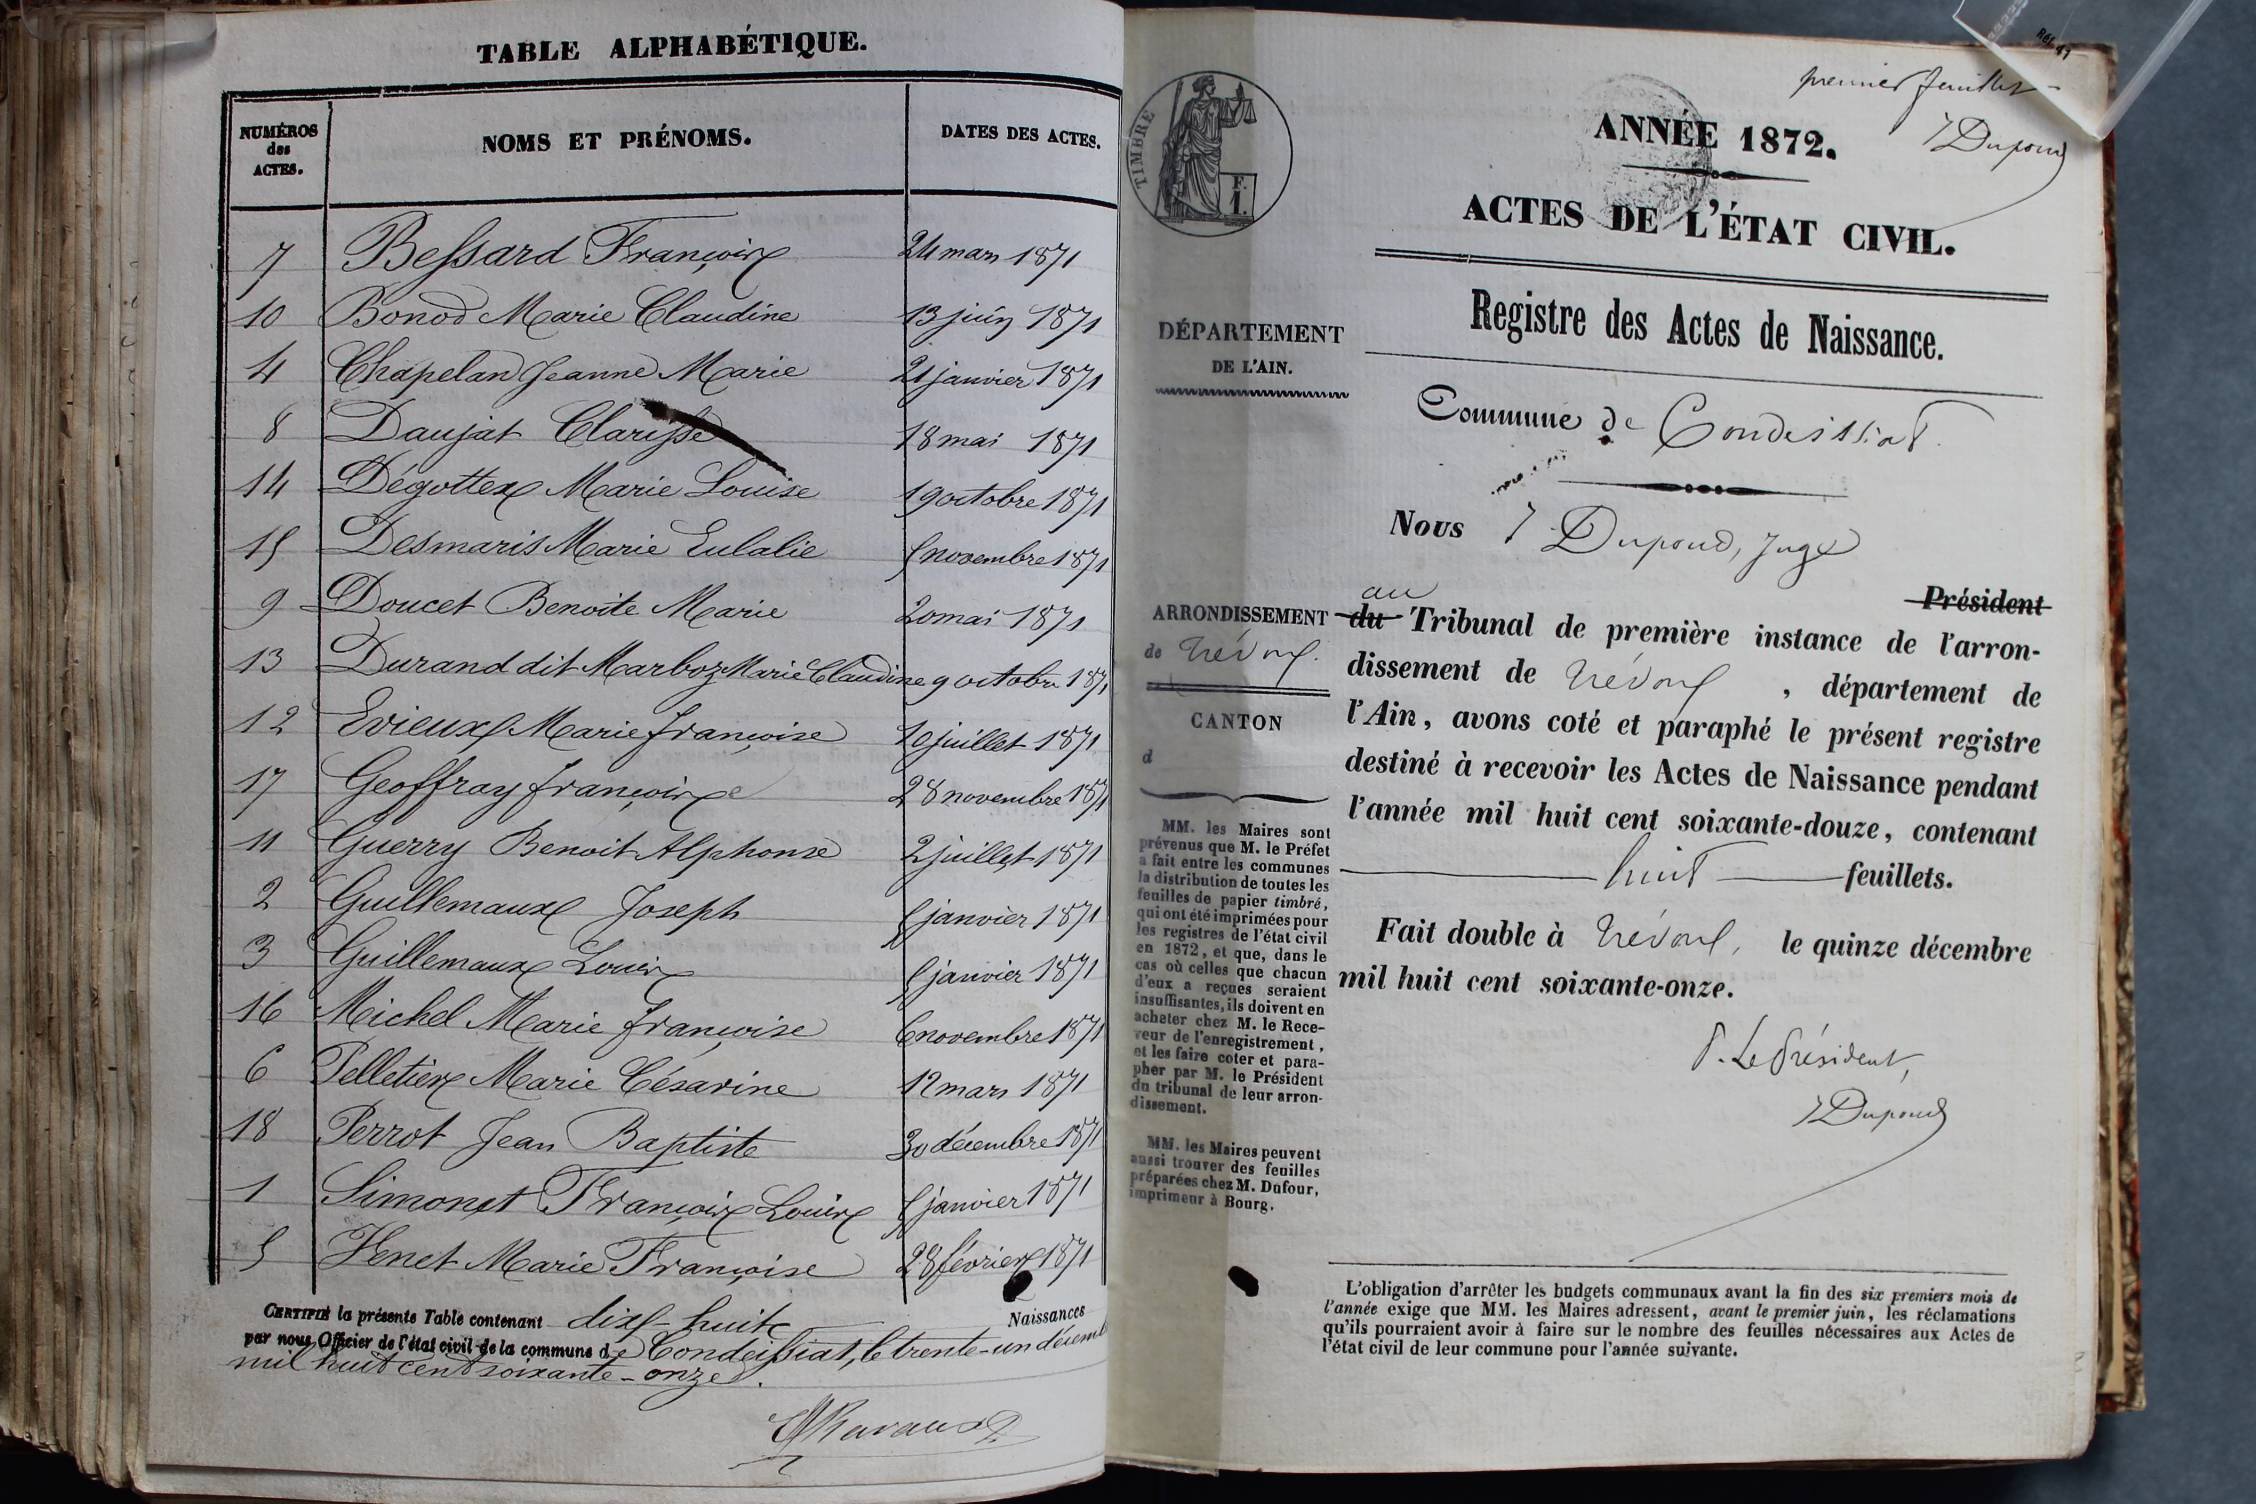 TABLE ALPHABÉTIQUE.
NUMÉROS des ACTES. NOMS ET PRÉNOMS. DATES DES ACTES.
7 Bessard François 24 mars 1871
10 Bonod Marie Claudine 13 juin 1871
4 Chapelan Jeanne Marie 21 janvier 1871
8 Daujat Clarisse 18 mai 1871
14 Dégottex Marie Louise 19 octobre 1871
15 Desmaris Marie Eulalie 5 novembre 1871
9 Doucet Benoite Marie 20 mai 1871
13 Durand dit Marboz Marie Claudine 9 octobre 1871
12 Evieux Marie françoise 10 juillet 1871
17 Geoffray françoise 28 novembre 1871
11 Guerry Benoit Alphonse 2 juillet 1871
2 Guillemaux Joseph 5 janvier 1871
3 Guillemaux Louis 5 janvier 1871
16 Michel Marie françoise 6 novembre 1871
6 Pelletier Marie Césarine 12 mars 1871
18 Perrot Jean Baptiste 30 décembre 1871
1 Simonet François Louis 5 janvier 1871
5 Venet Marie Françoise 28 février 1871
CERTIFIÉ la présente Table contenant dix-huit Naissances
par nous Officier de l'état civil de la commune de Condeissiat, le trente-un décembre
mil huit cent soixante-onze.
premier feuillet
Dupond
TIMBRE
F.
1.
ANNÉE 1872.
ACTES DE L'ÉTAT CIVIL.
Registre des Actes de Naissance.
DÉPARTEMENT
DE L'AIN.
Commune de Condeissiat
Nous Dupond, Juge
Président
au
ARRONDISSEMENT
de Trévoux.
CANTON
d
du Tribunal de première instance de l'arron-
dissement de Trévoux, département de
l'Ain, avons coté et paraphé le présent registre
destiné à recevoir les Actes de Naissance pendant
l'année mil huit cent soixante-douze, contenant
huit feuillets.
Fait double à Trévoux, le quinze décembre
mil huit cent soixante-onze.
P. Le Président,
Dupond
MM. les Maires sont
prévenus que M. le Préfet
a fait entre les communes
la distribution de toutes les
feuilles de papier timbré,
qui ont été imprimées pour
les registres de l'état civil
en 1872, et que, dans le
cas où celles que chacun
d'eux a reçues seraient
insuffisantes, ils doivent en
acheter chez M. le Rece-
veur de l'enregistrement,
et les faire coter et para-
pher par M. le Président
du tribunal de leur arron-
dissement.
MM. les Maires peuvent
aussi trouver des feuilles
préparées chez M. Dufour,
imprimeur à Bourg.
L'obligation d'arrêter les budgets communaux avant la fin des six premiers mois de
l'année exige que MM. les Maires adressent, avant le premier juin, les réclamations
qu'ils pourraient avoir à faire sur le nombre des feuilles nécessaires aux Actes de
l'état civil de leur commune pour l'année suivante.